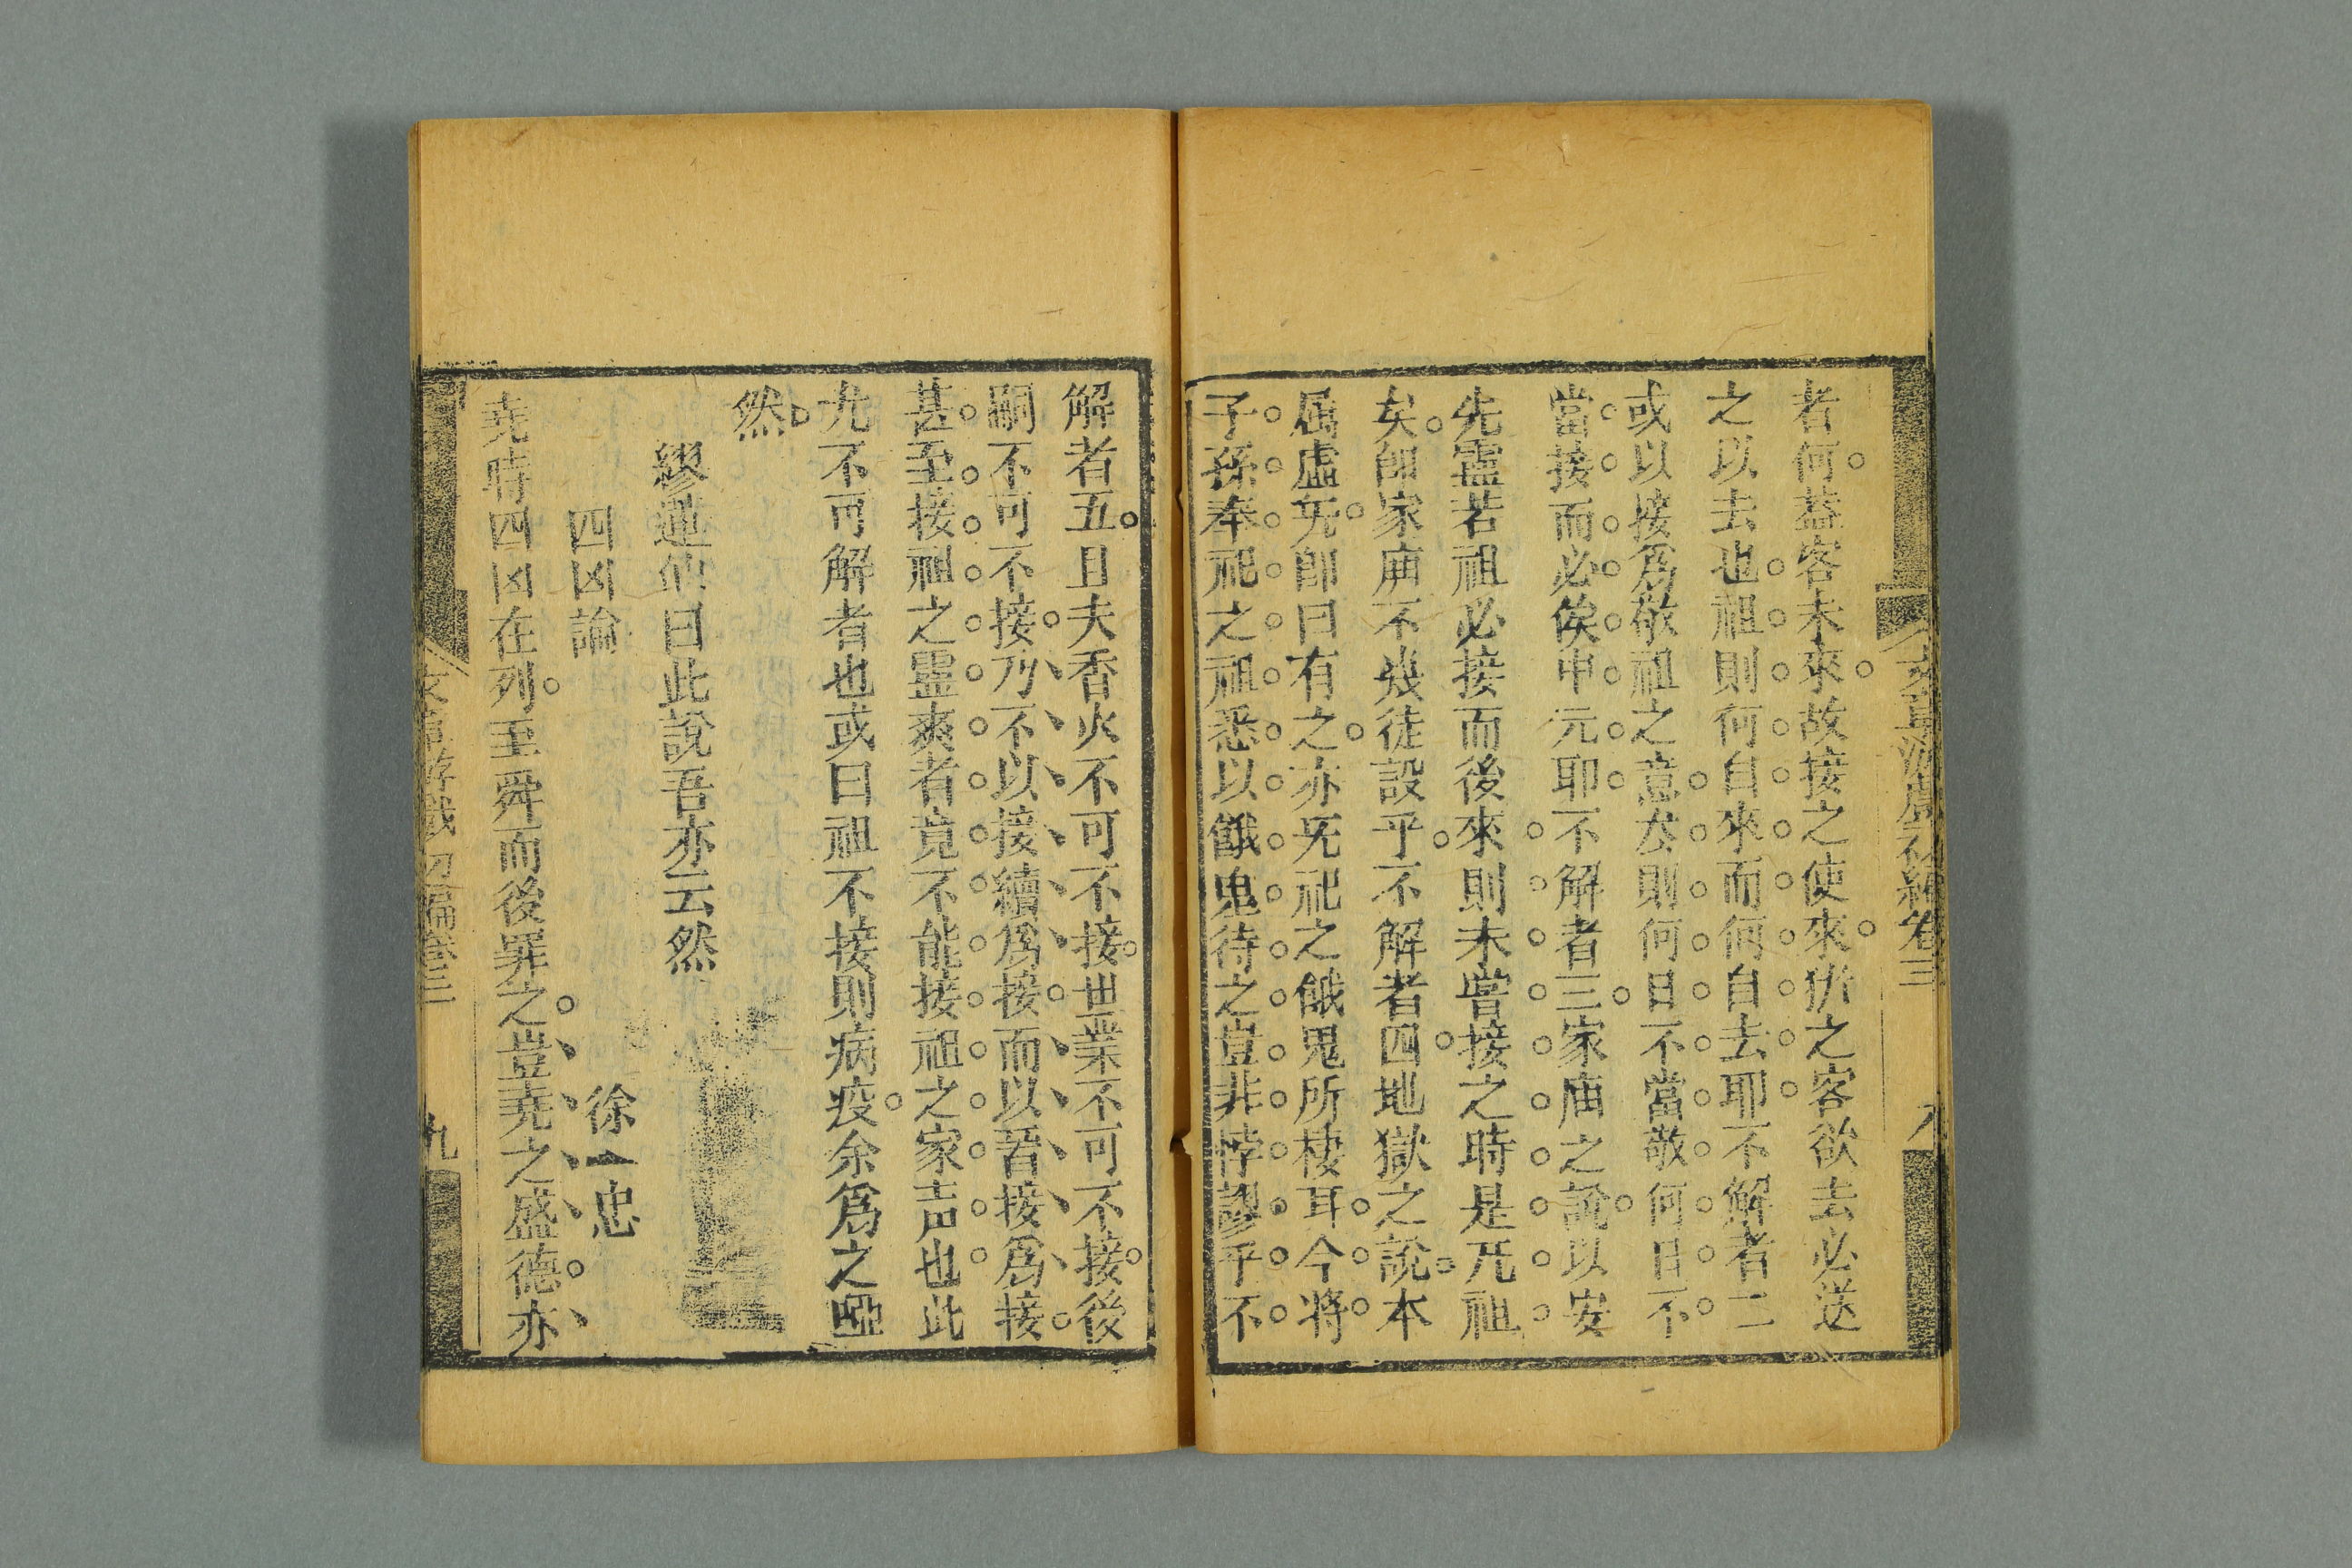 者何葢客未來故接之使來猶之客欲去必送
之以去也祖則何自來而何自去耶不解者二
或以接爲敬祖之意矣則何日不當敬何日不
當接而必俟中元耶不解者三家庙之說以安
先霊若祖必接而後來則未嘗接之時是旡祖
矣卽家庙不幾徒設乎不解者四地獄之說本
属虛旡卽曰有之亦旡祀之餓鬼所棲耳今將
子孫奉祀之祖悉以餓鬼待之豈非悖謬乎不
解者五且夫香火不可不接世業不可不接後
嗣不可不接乃不以接續爲接而以晉接爲接
甚至接祖之霊爽者竟不能接祖之家声也此
尤不可解者也或曰祖不接則病疫余爲之啞
然
繆蓮仙曰此說吾亦云然
四凶論
徐一忠
尭時四凶在列至舜而後罪之豈尭之盛德亦
文章游戲初編卷三
九